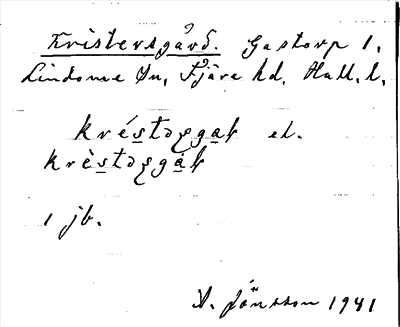 Kristersgård. Gastorp 1.
Lindome sn, Fjäre hd, Hall. l.
kréstəsgaṣ el.
krèstəsgàṣ
1 jb.
A. Jönsson 1941